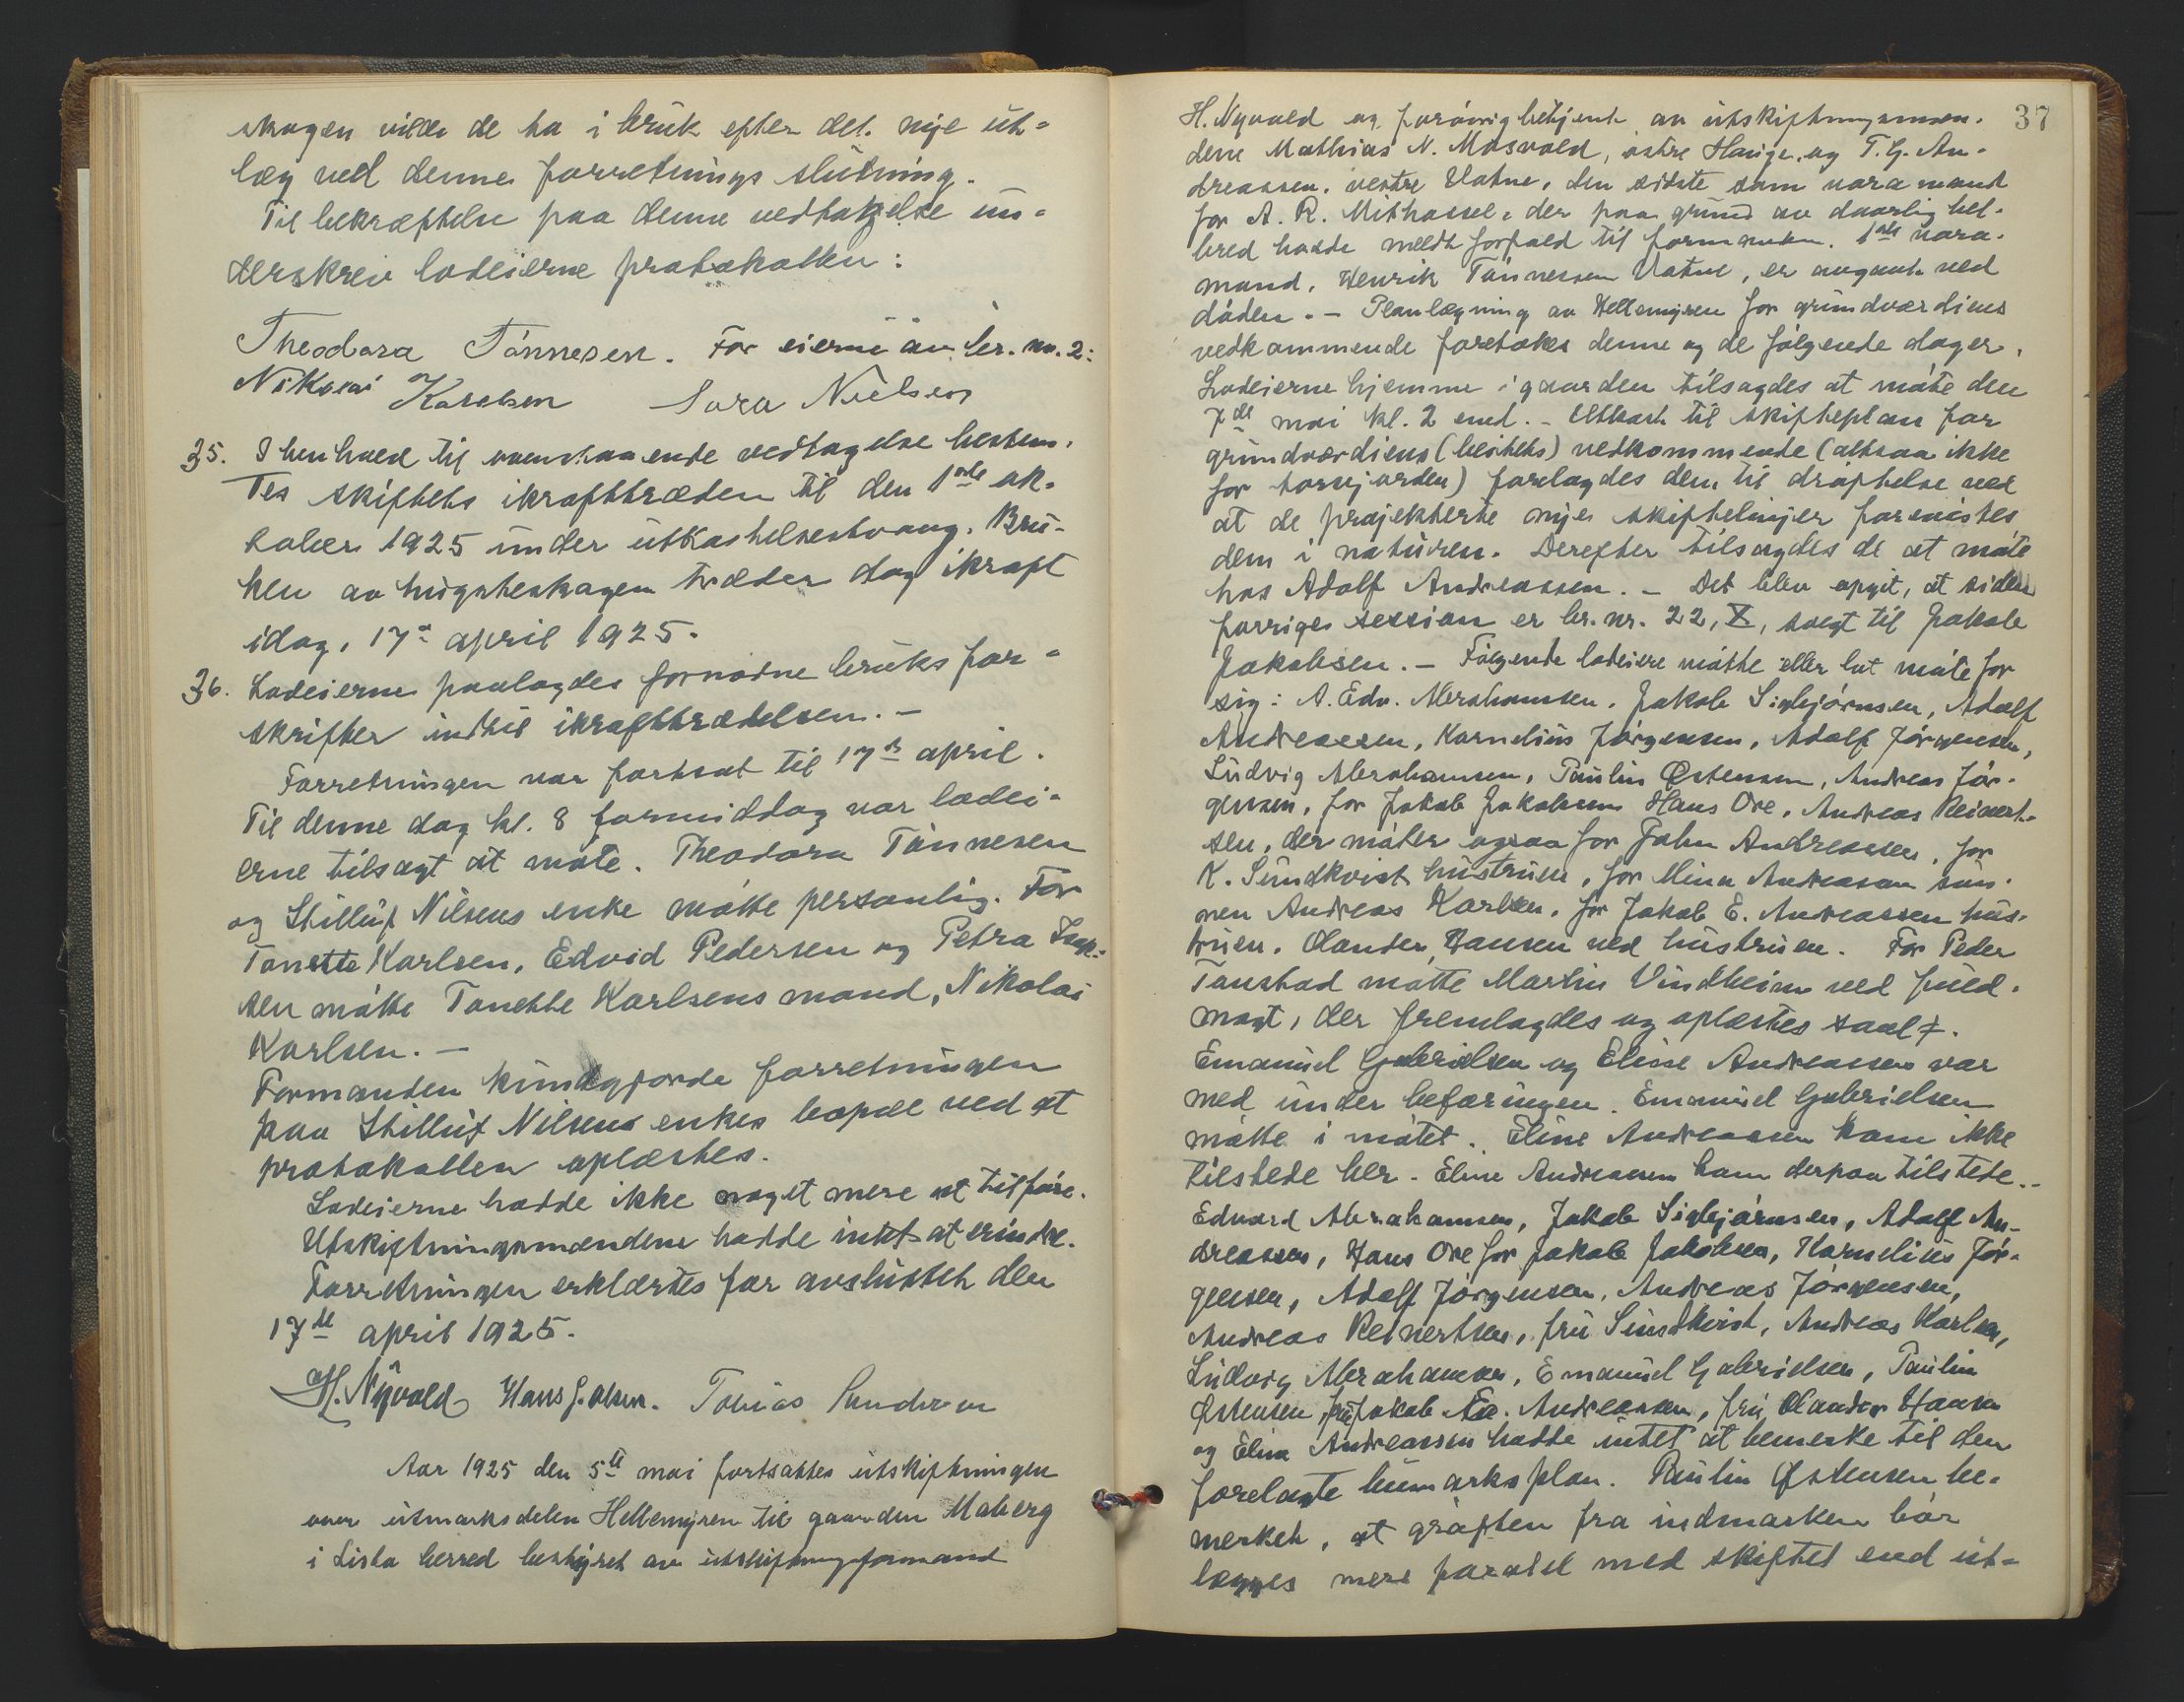 skogen vilde de ha i bruk efter det nye ut-
læg ved denne forretnings slutning.
Til bekræftelse paa denne vedtagelse un-
derskrev lodeierne protokollen:
Theodora Tönnesen. For eierne av br. nr. 2:
Nikolai Karlsen Sara Nielsen
35. I henhold til ovenstaaende vedtagelse bestem-
tes skiftets ikrafttræden til den 1ste ok-
tober 1925 under utkastelsestvang. Bru-
ken av hugstskogen træder dog ikraft
idag, 17de april 1925.
36. Lodeierne paalagdes fornødne bruksfor-
skrifter indtil ikrafttrædelsen. –
Forretningen var fortsat til 17de april.
Til denne dag kl. 8 formiddag var lodei-
erne tilsagt at møte. Theodora Tönnesen
og Stilluf Nilsens enke møtte personlig. For
Tonette Karlsen, Edvid Pedersen og Petra
sen møtte Tonette Karlsens mand, Nikolai
Karlsen. –
Formanden kundgjorde forretningen
paa Stilluf Nilsens enkes bopæl ved at
protokollen oplæstes.
Lodeierne hadde ikke noget mere at tilføre.
Utskiftningsmændene hadde intet at erindre.
Forretningen erklærtes for avsluttet den
17de april 1925.
H. Nyvold Hans J. Olsen. Tobias
Aar 1925 den 5te mai fortsattes utskiftningen
over utmarksdelen Hellemyren til gaarden Maberg
i Lista herred bestyret av utskiftningsformand
37
H. Nyvold og forøvrig betjent av utskiftningsmæn-
dene Mathias N. Mosvold, østre Hauge, og T. G. An-
dreassen, vestre Vatne, den sidste som varamand
for A. R. Mithassel, der paa grund av daarlig hel-
bred hadde meldt forfald til formanden. 1ste vara-
mand, Henrik Tönnessen Vatne, er avgaat ved
døden. – Planlægning av Hellemyren for grundværdiens
vedkommende foretokes denne og de følgende dager.
Lodeierne hjemme i gaarden tilsagdes at møte den
7de mai kl. 2 emd. – Utkast til skifteplan for
grundværdiens (beitets) vedkommende (altsaa ikke
for torvjorden) forelagdes dem til drøftelse ved
at de projekterte nye skiftelinjer forevistes
dem i naturen. Derefter tilsagdes de at møte
hos Adolf Andreassen. – Det blev opgit, at siden
forrige session er br. nr. 22, X, solgt til Jakob
Jakobsen. – Følgende lodeiere møtte eller lot møte for
sig: A. Edv. Abrahamsen, Jakob Sigbjørnsen, Adolf
Andreassen, Kornelius Jørgensen, Adolf Jørgensen,
Ludvig Abrahamsen, Paulin Østensen, Andreas Jør-
gensen, for Jakob Jakobsen Hans Ore, Andreas Reinert-
sen, der møter ogsaa for John Andreassen, for
K. Sundkvist hustruen, for Mina Andreassen søn-
nen Andreas Karlsen, for Jakob E. Andreassen hus-
truen, Olander Hansen ved hustruen. For Peder
Tanstad møtte Martin Vindheim ved fuld-
magt, der fremlagdes og oplæstes saal.
Emanuel Gabrielsen og Elise Andreassen var
med under befaringen. Emanuel Gabrielsen
møtte i møtet. Eline Andreassen kom ikke
tilstede her. Eline Andreassen kom derpaa tilstede. –
Edvard Abrahamsen, Jakob Sigbjørnsen, Adolf An-
dreassen, Hans Ore for Jakob Jakobsen, Kornelius Jør-
gensen, Adolf Jørgensen, Andreas Jørgensen,
Andreas Reinertsen, fru Sundkvist, Andreas Karlsen,
Ludvig Abrahamsen, Emanuel Gabrielsen, Paulin
Østensen, fru Jakob E. Andreassen, fru Olander Hansen
og Elina Andreassen hadde intet at bemerke til den
forelagte plan. Paulin Østensen be-
merket, at grøften fra indmarken bør
lægges mere paralel med skiftet end ut-